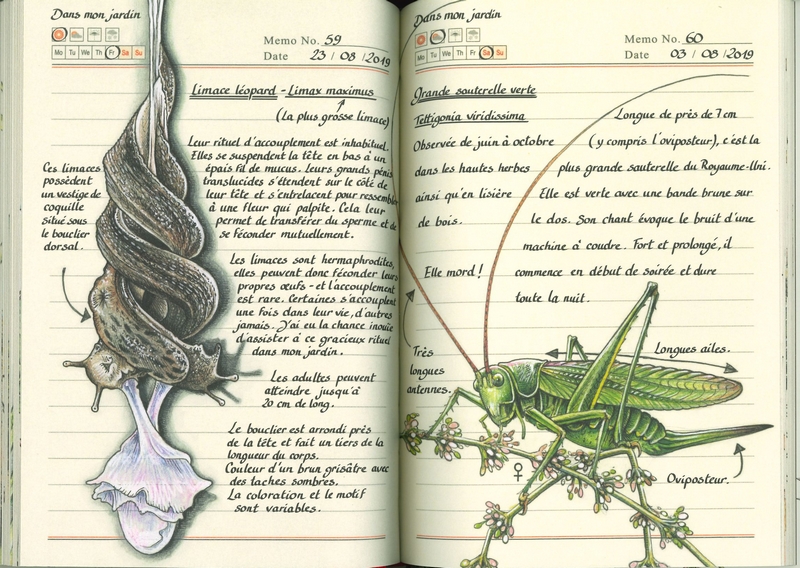 Dans mon jardin
Memo No. 59
Mo Tu We Th Fr Sa Su
Date 23 / 08 / 2019
Limace léopard - Limax maximus
(La plus grosse limace)
Leur rituel d'accouplement est inhabituel.
Elles se suspendent la tête en bas à un
épais fil de mucus. Leurs grands pénis
translucides s'étendent sur le côté de
leur tête et s'entrelacent pour ressembler
à une fleur qui palpite. Cela leur
permet de transférer du sperme et de
se féconder mutuellement.
Ces limaces
possèdent
un vestige de
coquille
situé sous
le bouclier
dorsal.
Les limaces sont hermaphrodites,
elles peuvent donc féconder leurs
propres œufs - et l'accouplement
est rare. Certaines s'accouplent
une fois dans leur vie, d'autres
jamais. J'ai eu la chance inouïe
d'assister à ce gracieux rituel
dans mon jardin.
Les adultes peuvent
atteindre jusqu'à
20 cm de long.
Le bouclier est arrondi près
de la tête et fait un tiers de la
longueur du corps.
Couleur d'un brun grisâtre avec
des taches sombres.
La coloration et le motif
sont variables.
Dans mon jardin
Memo No. 60
Mo Tu We Th Fr Sa Su
Date 03 / 08 / 2019
Grande sauterelle verte
Tettigonia viridissima
Observée de juin à octobre
dans les hautes herbes
ainsi qu'en lisière
de bois.
Longue de près de 7 cm
(y compris l'oviposteur), c'est la
plus grande sauterelle du Royaume-Uni.
Elle est verte avec une bande brune sur
le dos. Son chant évoque le bruit d'une
machine à coudre. Fort et prolongé, il
commence en début de soirée et dure
toute la nuit.
Elle mord !
Très
longues
antennes.
Longues ailes.
♀
Oviposteur.